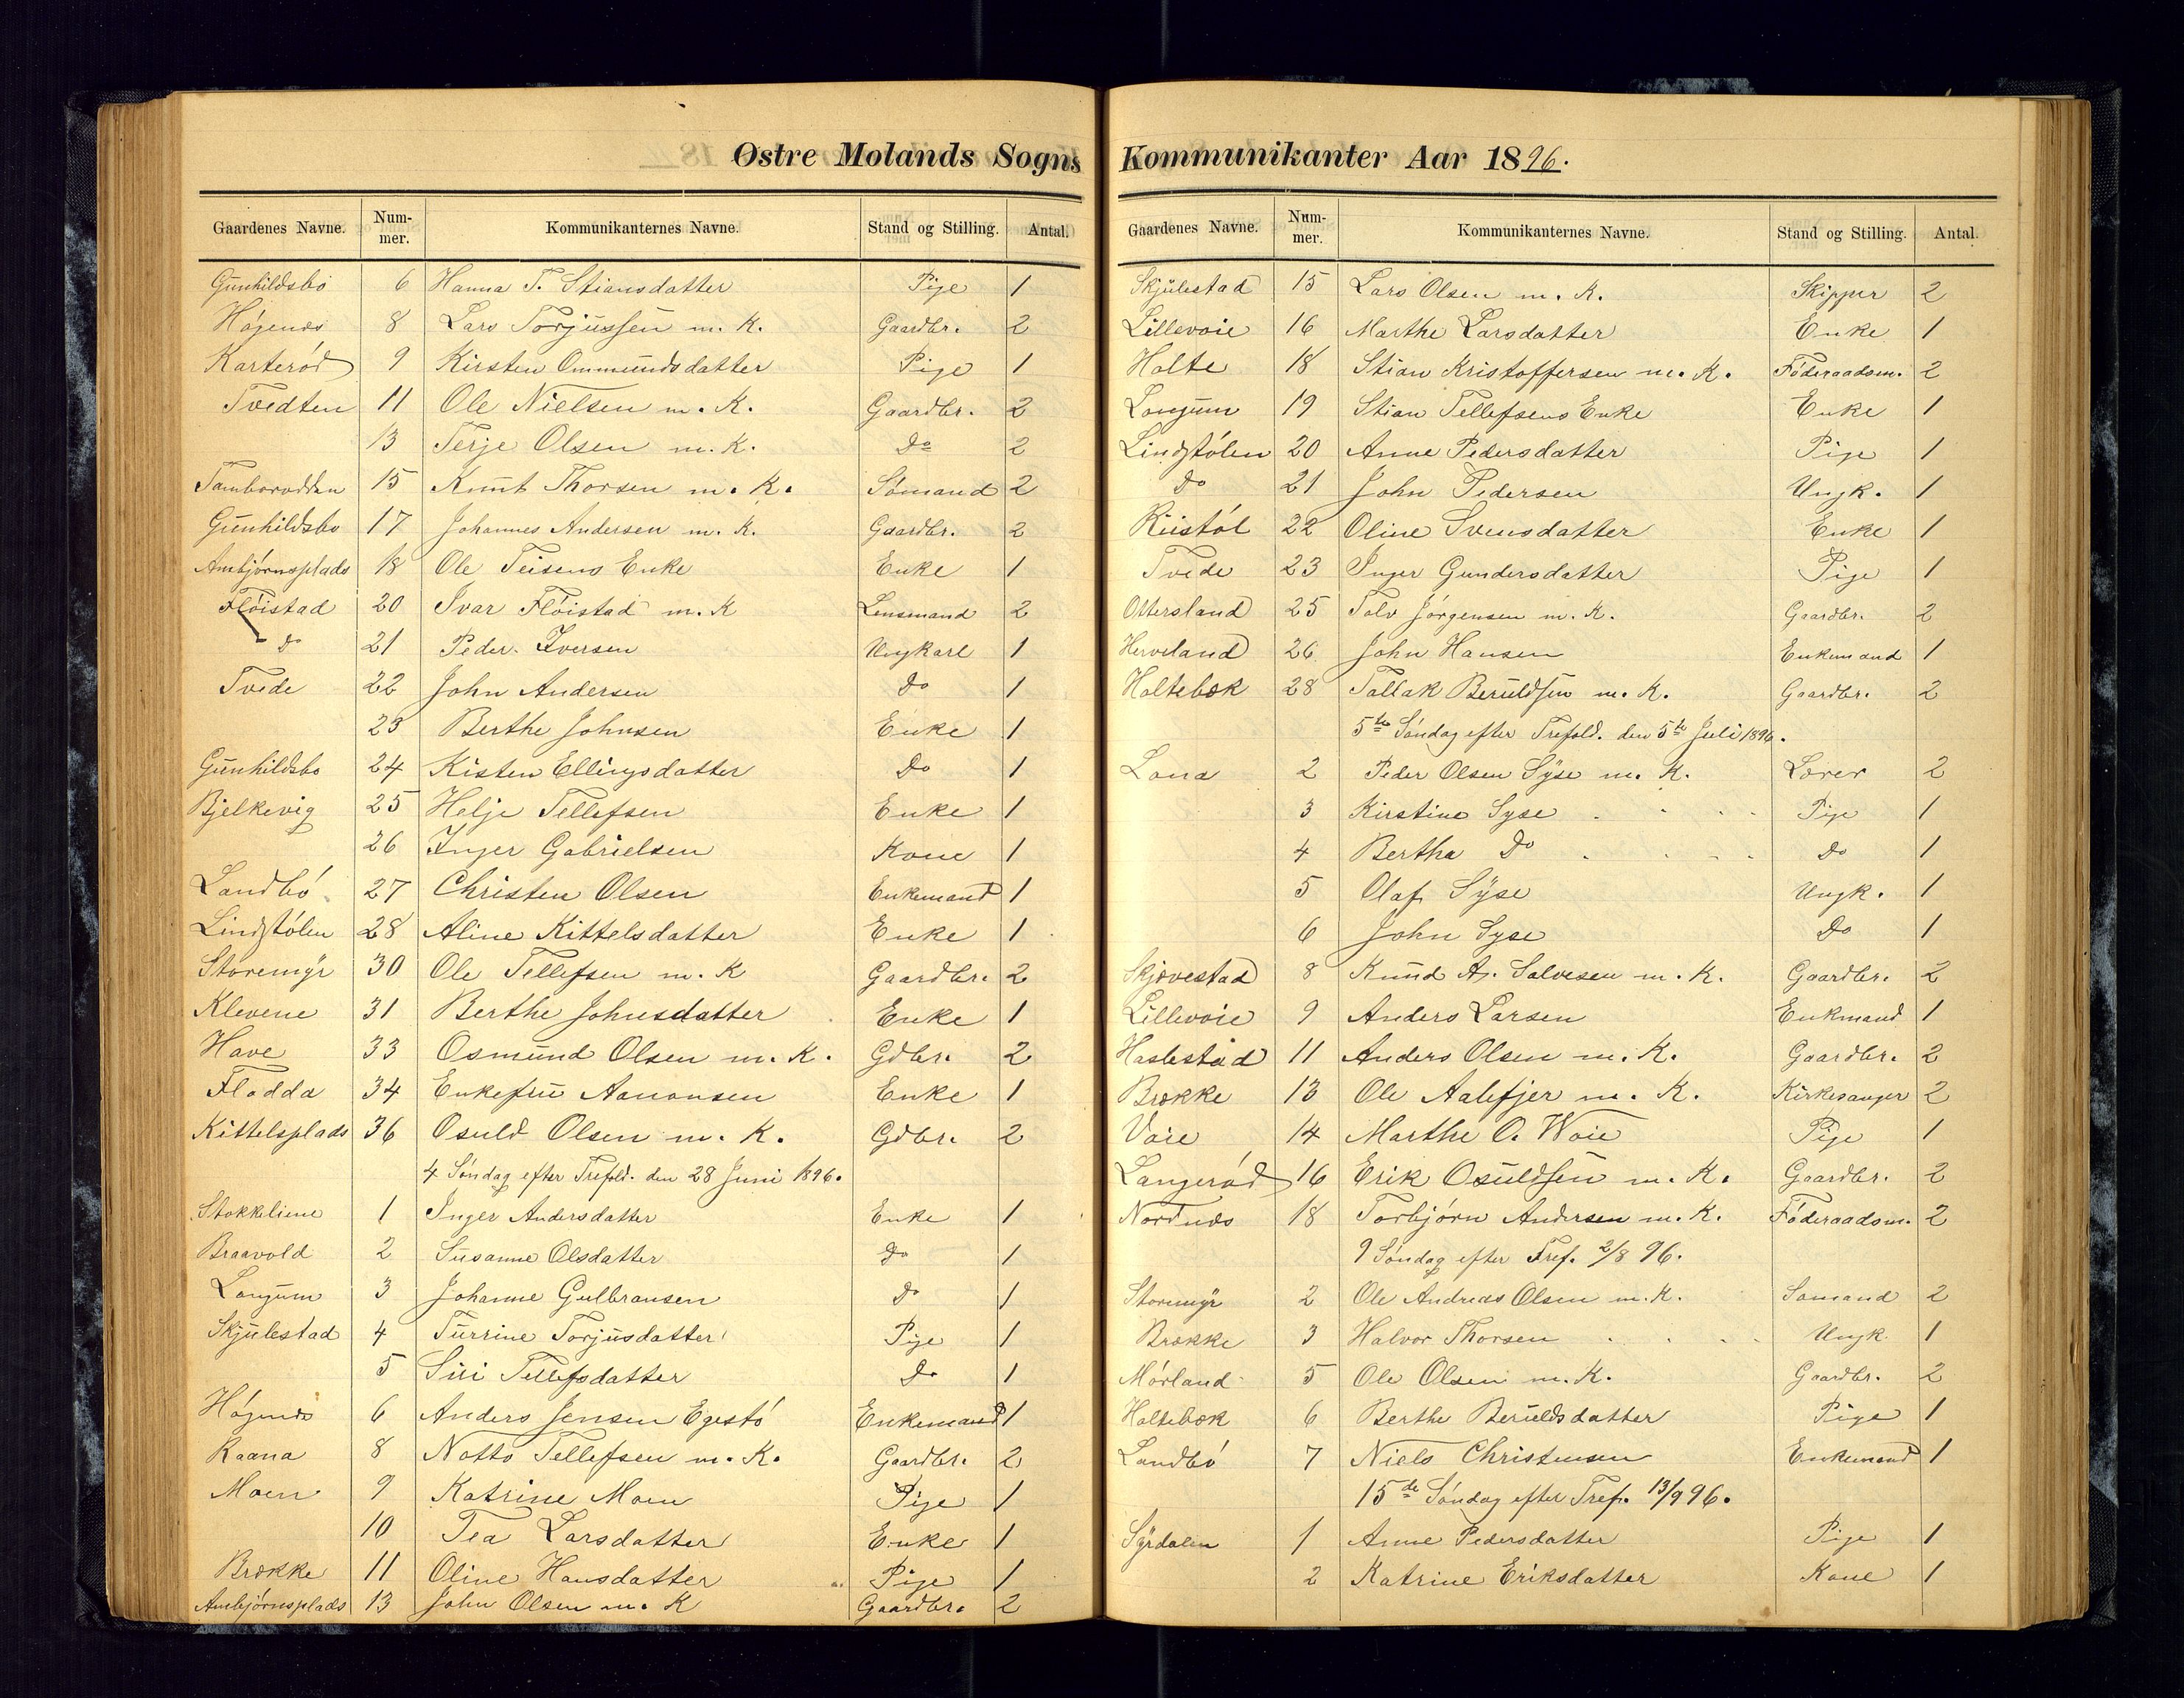 Østre Molands Sogns Kommunikanter Aar 1896.
Gaardenes Navne. Nummer. Kommunikanternes Navne. Stand og Stilling. Antal.
Gunhildsbo 6 Hanna T. Stiansdatter Pige 1
Högenes 8 Lars Torjussen m. K. Gaardbr. 2
Karteröd 9 Kirsten Ommundsdatter Pige 1
Tvedten 11 Ole Nielsen m. K. Gaardbr. 2
13 Terje Olsen m. K. Do 2
Tamborodden 15 Knut Thorsen m. K. Sömand 2
Gunhildsbo 17 Johannes Andersen m. K. Gaardbr. 2
Ambjörnsplads 18 Ole Teisens Enke Enke 1
Flöistad 20 Ivar Flöistad m. K Lensmand 2
Do 21 Peder Iversen Ungkarl 1
Tvede 22 John Andersen Do 1
23 Berthe Johnsen Enke 1
Gunhildsbo 24 Kisten Ellingsdatter Do 1
Bjelkevig 25 Helje Tellefsen Enke 1
26 Inger Gabrielsen Kone 1
Landbö 27 Christen Olsen Enkemand 1
Lindstölen 28 Aline Kittelsdatter Enke 1
Storemyr 30 Ole Tellefsen m. K Gaardbr. 2
Klevene 31 Berthe Johnsdatter Enke 1
Have 33 Osmund Olsen m. K. Gdbr. 2
Flodda 34 Enkefru Aanonsen Enke 1
Kittelsplads 36 Osuld Olsen m. K. Gdbr. 2
4 Söndag efter Trefold. den 28 Juni 1896.
Stokkeliene 1 Inger Andersdatter Enke 1
Braavold 2 Susanne Olsdatter Do 1
Longum 3 Johanne Gulbransen Do 1
Skjulestad 4 Turrine Torjusdatter Pije 1
5 Siri Tellefsdatter Do 1
Högenes 6 Anders Jensen Egestö Enkemand 1
Raana 8 Notto Tellefsen m. K. Gaardbr. 2
Moen 9 Katrine Moen Pije 1
10 Tea Larsdatter Enke 1
Brække 11 Oline Hansdatter Pige 1
Ambjörnsplads 13 John Olsen m. K Gaardbr. 2
Gaardenes Navne. Nummer. Kommunikanternes Navne. Stand og Stilling. Antal.
Skjulestad 15 Lars Olsen m. K. Skipper 2
Lillevoie 16 Marthe Larsdatter Enke 1
Holte 18 Stian Kristoffersen m. K. Föderaadsm. 2
Longum 19 Stian Tellefsens Enke Enke 1
Lindstölen 20 Anne Pedersdatter Pige 1
Do 21 John Pedersen Ungk. 1
Riistöl 22 Oline Svensdatter Enke 1
Tvede 23 Inger Gundersdatter Pige 1
Ottersland 25 Tolv Jörgensen m. K. Gaardbr. 2
Herveland 26 John Hansen Enkemand 1
Holtebæk 28 Tallak Beruldsen m. K. Gaardbr. 2
5te Söndag efter Trefold. den 5te Juli 1896.
Lona 2 Peder Olsen Syse m. K. Lærer 2
3 Kirstine Syse Pije 1
4 Bertha Do Do 1
5 Olaf Syse Ungk. 1
6 John Syse Do 1
Skjovestad 8 Knud A. Salvesen m. K. Gaardbr. 2
Lillevoie 9 Anders Larsen Enkmand 1
Haslestad 11 Anders Olsen m. K. Gaardbr. 2
Brække 13 Ole Aalefjer m. K. Kirkesanger 2
Voie 14 Marthe O. Woie Pige 1
Langeröd 16 Erik Osuldsen m. K. Gaardbr. 2
Nordnes 18 Torbjörn Andersen m. K. Föderaadsm. 2
9 Söndag efter Tref. 2/8 96.
Storemyr 2 Ole Andreas Olsen m. K. Sømand 2
Brække 3 Halvor Thorsen Ungk. 1
Mörland 5 Ole Olsen m. K. Gaardbr. 2
Holtebæk 6 Berthe Beruldsdatter Pige 1
Landbö 7 Niels Christensen Enkemand 1
15de Söndag efter Tref. 13/9 96.
Syrdalen 1 Anne Pedersdatter Pige 1
2 Katrine Eriksdatter Kone 1